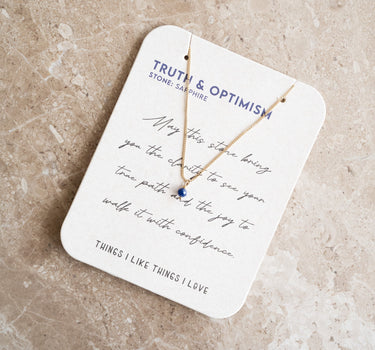 TRUTH & OPTIMISM
STONE: SAPPHIRE
May this stone bring
you the clarity to see your
true path and the joy to
walk it with confidence.
THINGS I LIKE THINGS I LOVE